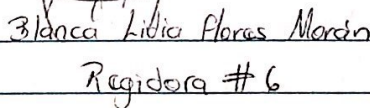 Blanca Lidia Flores Morán
Regidora # 6